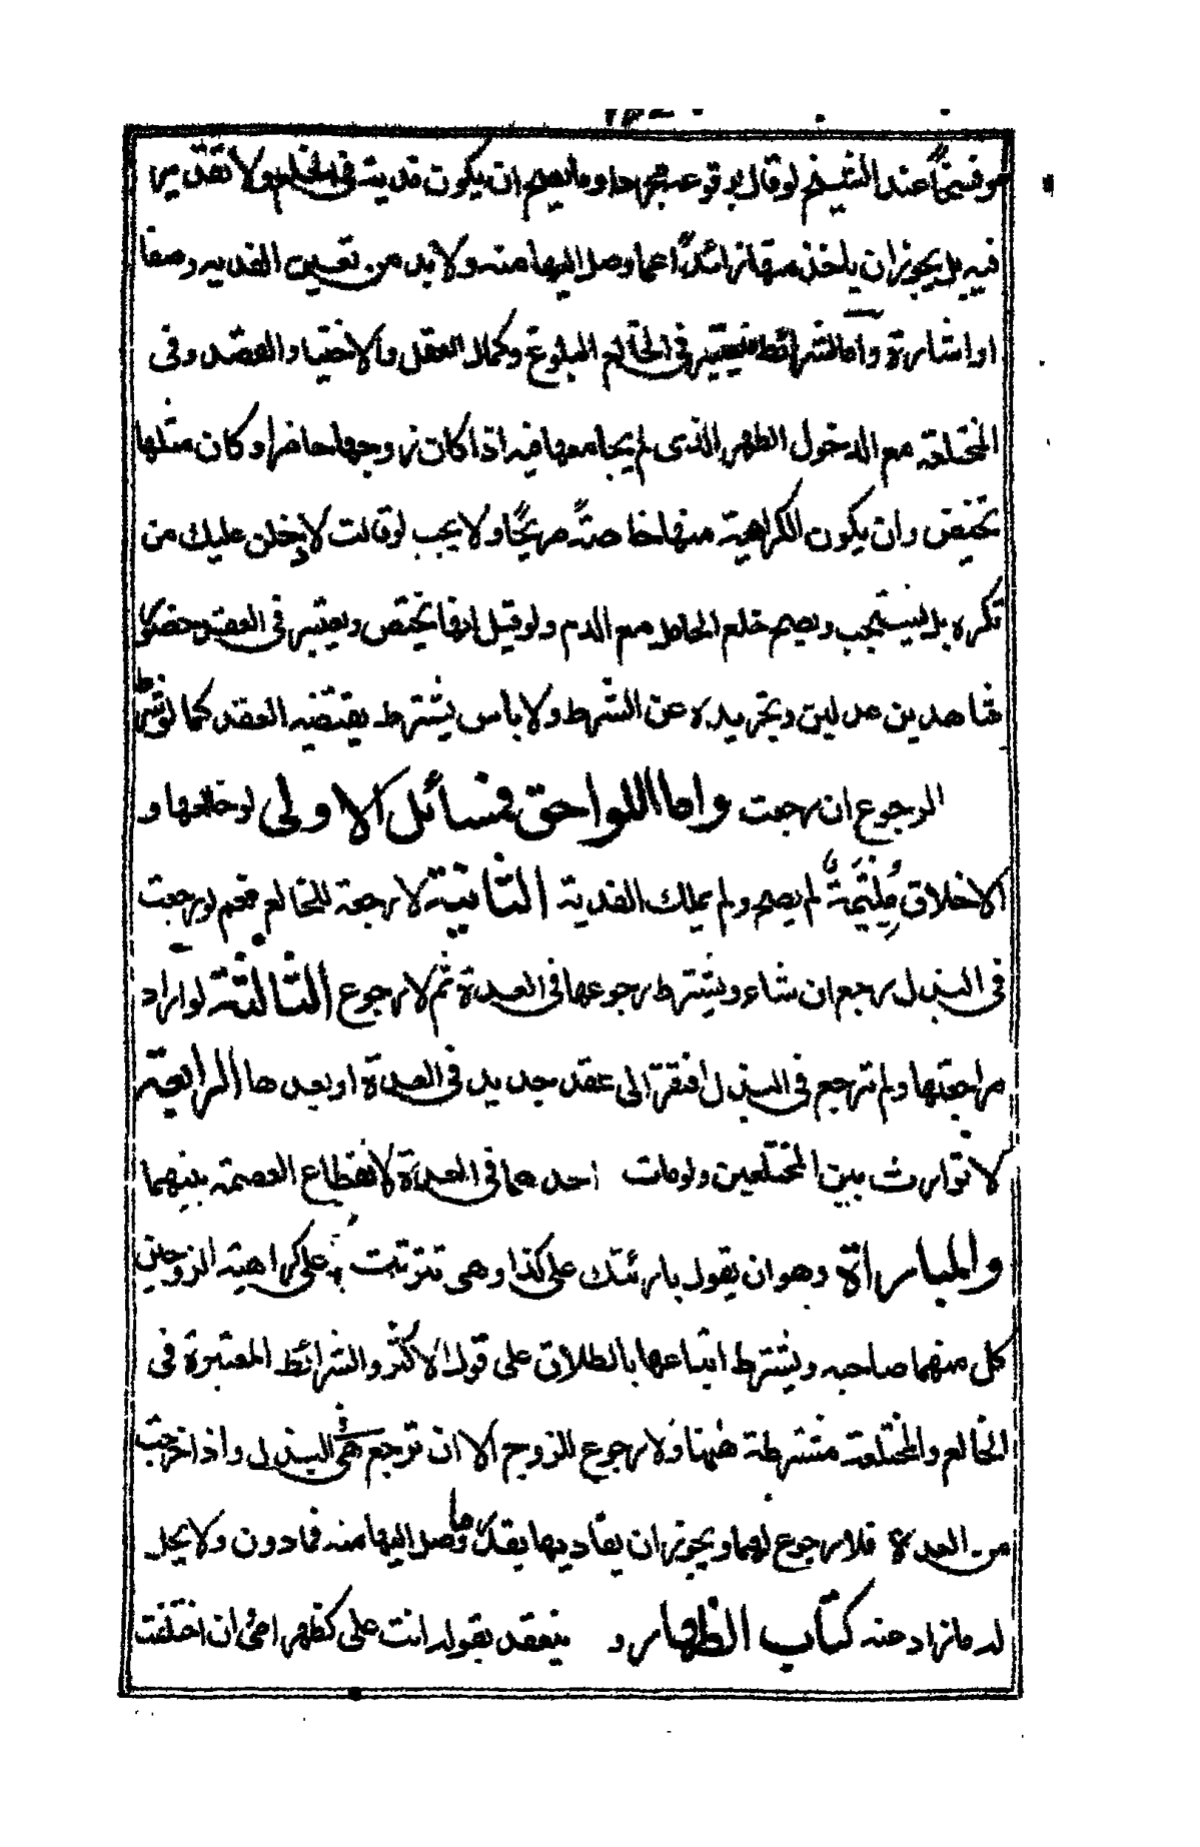 او فسخا عند الشيخ لو قال بوقوعه مجردا وما يصح ان يكون فدية فى الخلع ولا تقدير
فيه بل يجوز ان ياخذ منها زائدا عما وصل اليها منه ولا بد من تعيين الفدية وصفا
او اشارة واما الشرائط فيعتبر فى الخالع البلوغ وكمال العقل والاختيار والقصد وفى
المختلعة مع الدخول الطهر الذى لم يجامعها فيه اذا كان زوجها حاضرا وكان مثلها
تحيض وان يكون الكراهية منها خاصة صريحا ولا يجب لو قالت لادخلن عليك من
تكرهه بل يستحب ويصح خلع الحامل مع الدم ولو قيل انها تحيض ويعتبر فى العقد حضور
شاهدين عدلين وتجريده عن الشرط ولا باس بشرط يقتضيه العقد كما لو شرط
الرجوع ان رجعت واما اللواحق فمسائل الاولى لو خالعها و
الاخلاق ملتئمة لم يصح ولم يملك الفدية الثانية لا رجعة للخالع نعم لو رجعت
فى البذل رجع ان شاء ويشترط رجوعها فى العدة ثم لا رجوع الثالثة لو اراد
مراجعتها ولم ترجع فى البذل افتقر الى عقد جديد فى العدة او بعدها الرابعة
لا توارث بين المختلعين ولو مات احدهما فى العدة لانقطاع العصمة بينهما
والمباراة وهو ان يقول بارئتك على كذا وهى تترتب على كراهية الزوجين
كل منهما صاحبه ويشترط اتباعها بالطلاق على قول الاكثر والشرائط المعتبرة فى
الخالع والمختلعة مشترطة ههنا ولا رجوع للزوج الا ان ترجع هى فى البذل واذا خرجت
من العدة فلا رجوع لهما ويجوز ان يفاديها بقدر ما وصل اليها منه فما دون ولا يحل
له ما زاد عنه كتاب الظهار و ينعقد بقوله انت على كظهر امى ان اختلفت